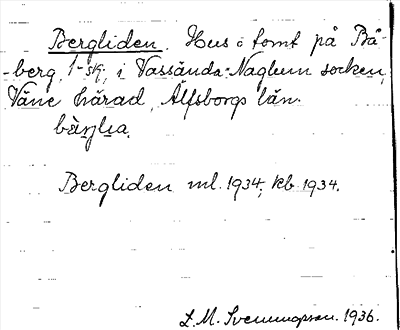 Bergliden. Hus o tomt på Bå-
-berg 1 sk, i Vassända-Naglum socken,
Väne härad, Älfsborgs län.
Bergliden ml. 1934; kb 1934.
L. M. Svenungsson. 1936.